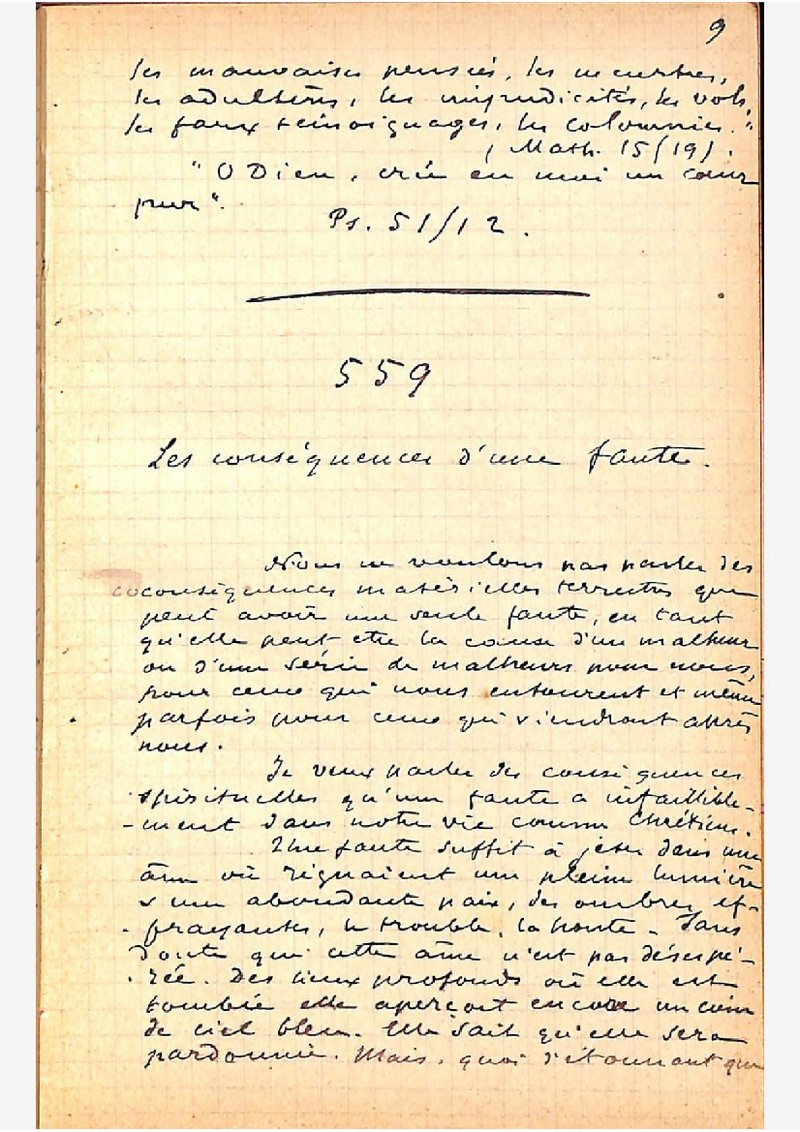 9
les mauvaises pensées, les meurtres,
les adultères, les impudicités, les vols,
les faux témoignages, les calomnies."
( Math. 15/19).
"O Dieu, crée en moi un cœur
pur".
Ps. 51/12.
559
Les conséquences d'une faute.
Nous ne voulons pas parler des
coconséquences matérielles terrestres que
peut avoir une seule faute, en tant
qu'elle peut être la cause d'un malheur
ou d'une série de malheurs pour nous,
pour ceux qui nous entourent et même
parfois pour ceux qui viendront après
nous.
Je veux parler des conséquences
spirituelles qu'une faute a infaillible-
-ment dans notre vie comme Chrétiens.
Une faute suffit à jeter dans une
âme où régnaient une pleine lumière
& une abondante paix, des ombres ef-
-frayantes, le trouble, la honte. Sans
doute que cette âme n'est pas désespé-
-rée. Des lieux profonds où elle est
tombée elle aperçoit encore un coin
de ciel bleu. Elle sait qu'elle sera
pardonnée. Mais, quoi d'étonnant que